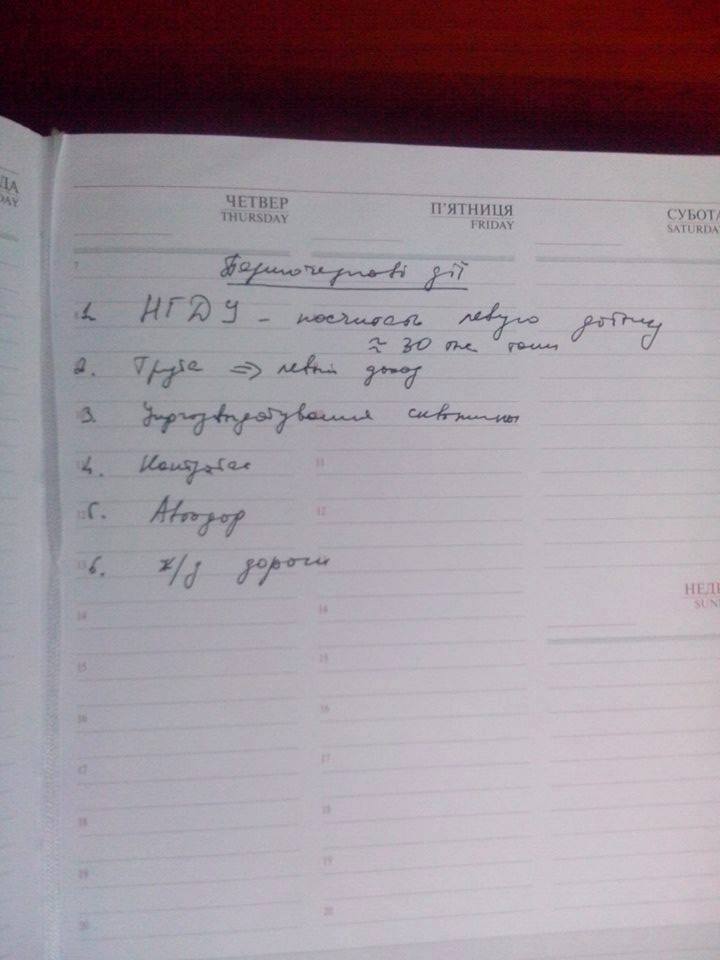 ДА
DAY
ЧЕТВЕР
THURSDAY
П'ЯТНИЦЯ
FRIDAY
СУБОТА
SATURDAY
7
Першочергові дії
1. НГДУ – посчитать левую добычу
≈ 30 тыс тонн
2. Труба => левый доход
3.
4.
5. Автодор
6. ж/д дороги
11
12
НЕДІ
SUN
14
14
15
15
16
16
17
17
18
18
19
19
20
20